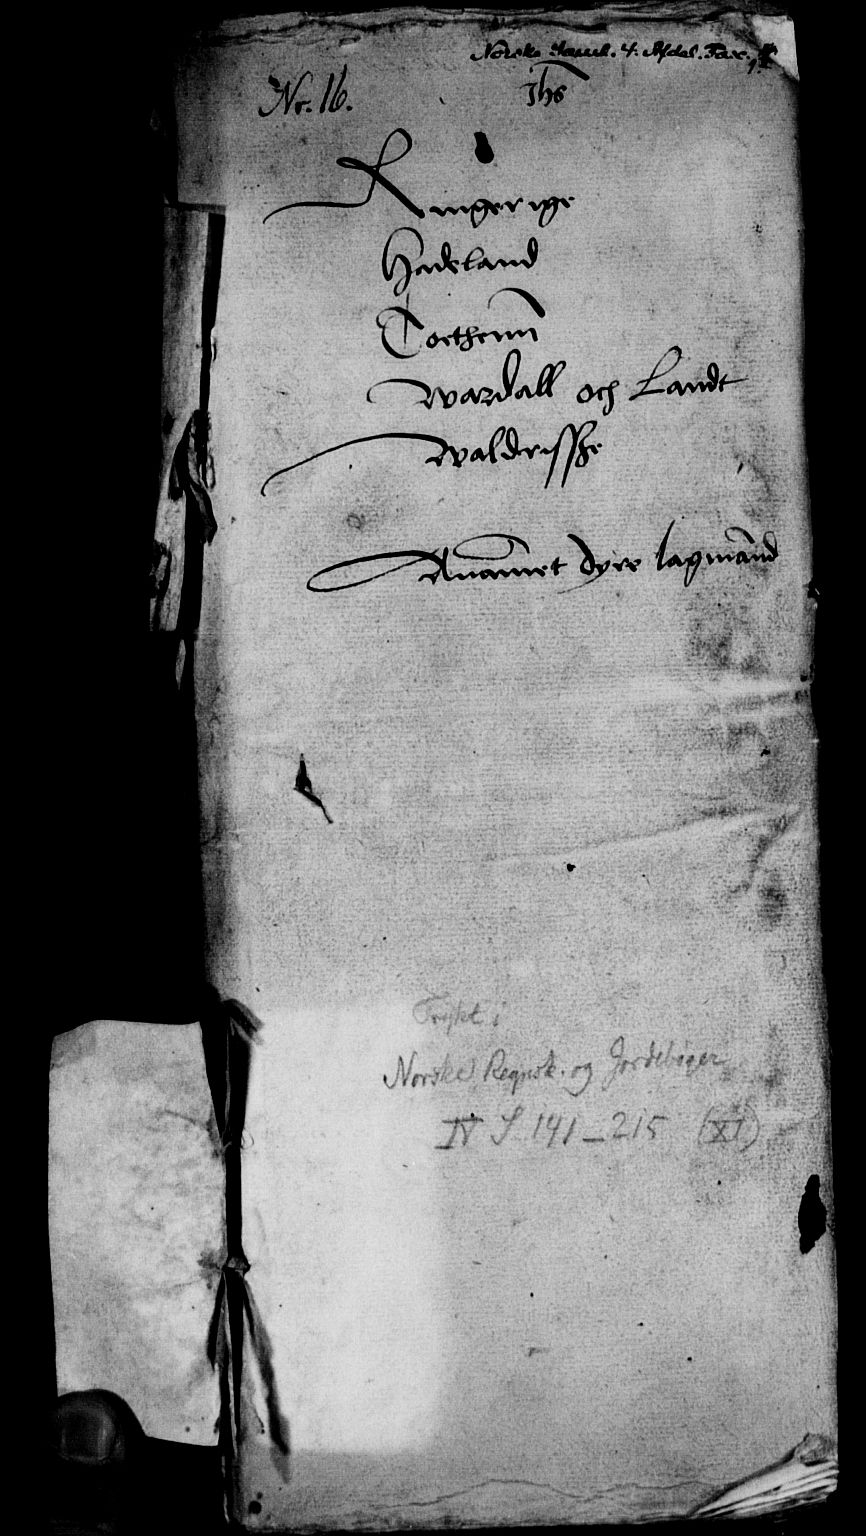 Norske Saml. 4. Afdel. Fasc.
Nr. 16.
Jhs
Ringerige
Hadeland
Toethenn
Wardall och Landt
Waldrissße
Anamet Dyre lagmand
Trykt i
Norske Regnsk. og Jordebøger
IV S. 141-215 (XI)